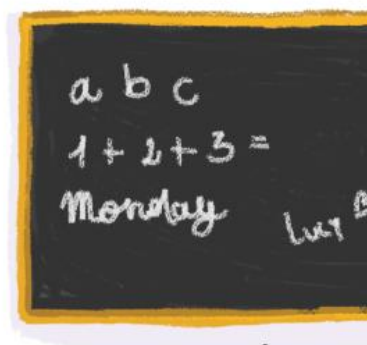 a b c
1 + 2 + 3 =
Monday
Lucy